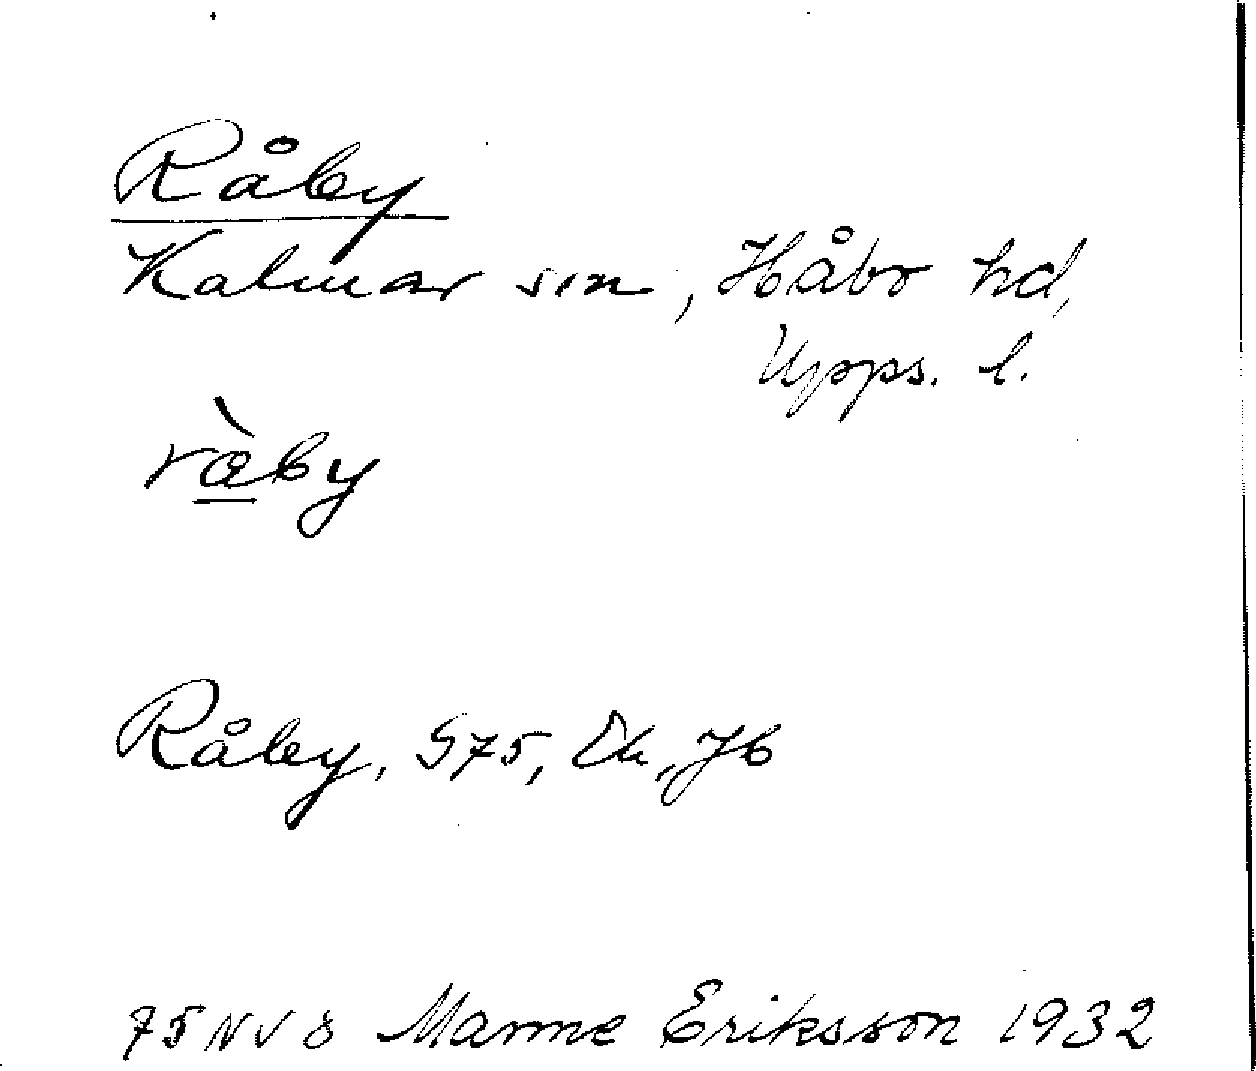 Råby
Kalmar sn, Håbo hd,
Upps. l.
Råby, G75, Ek, Jb
75 NV 8 Manne Eriksson 1932